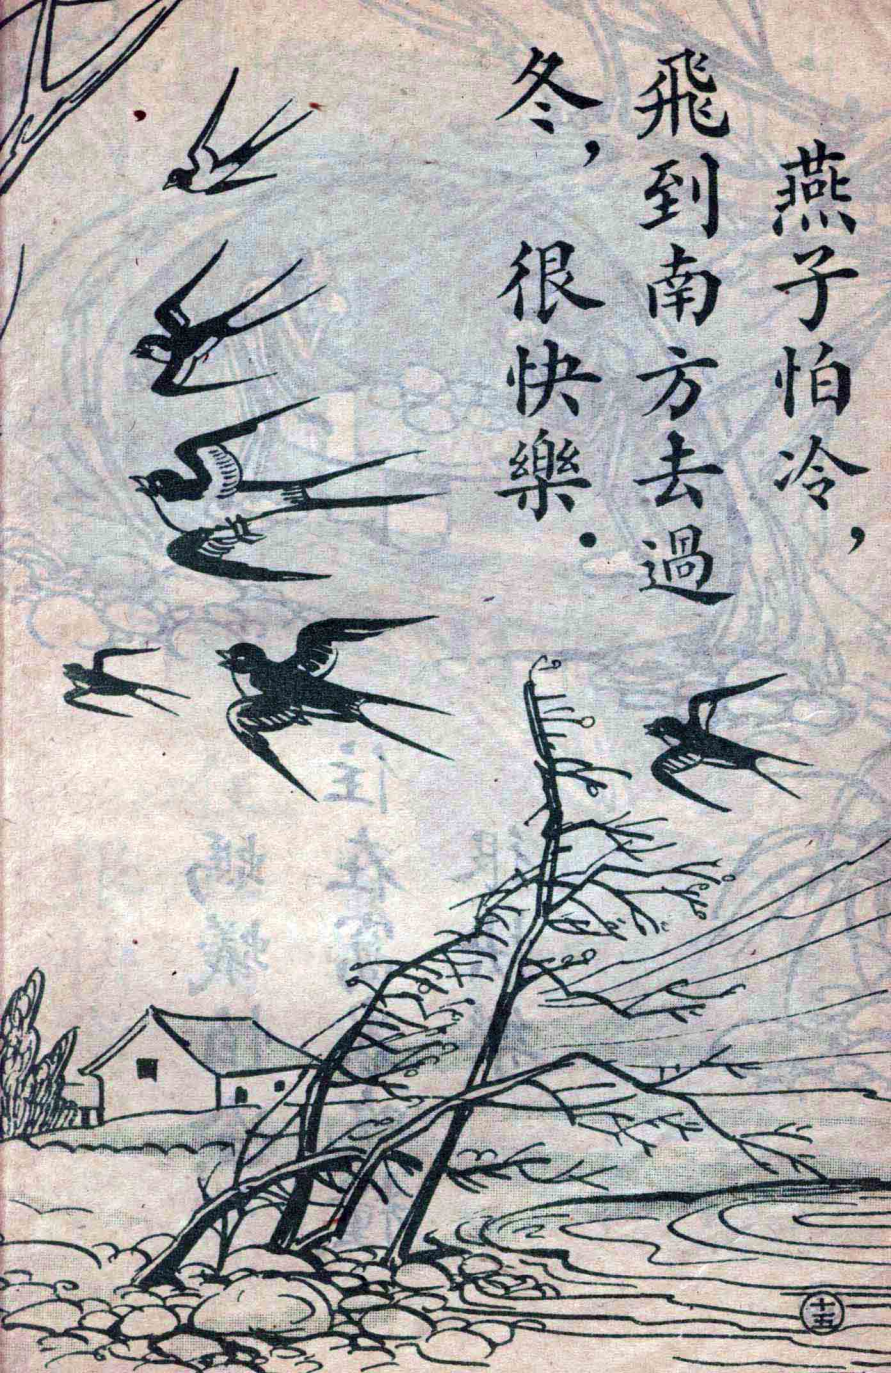 燕子怕冷，
飛到南方去過
冬，很快樂．
十五